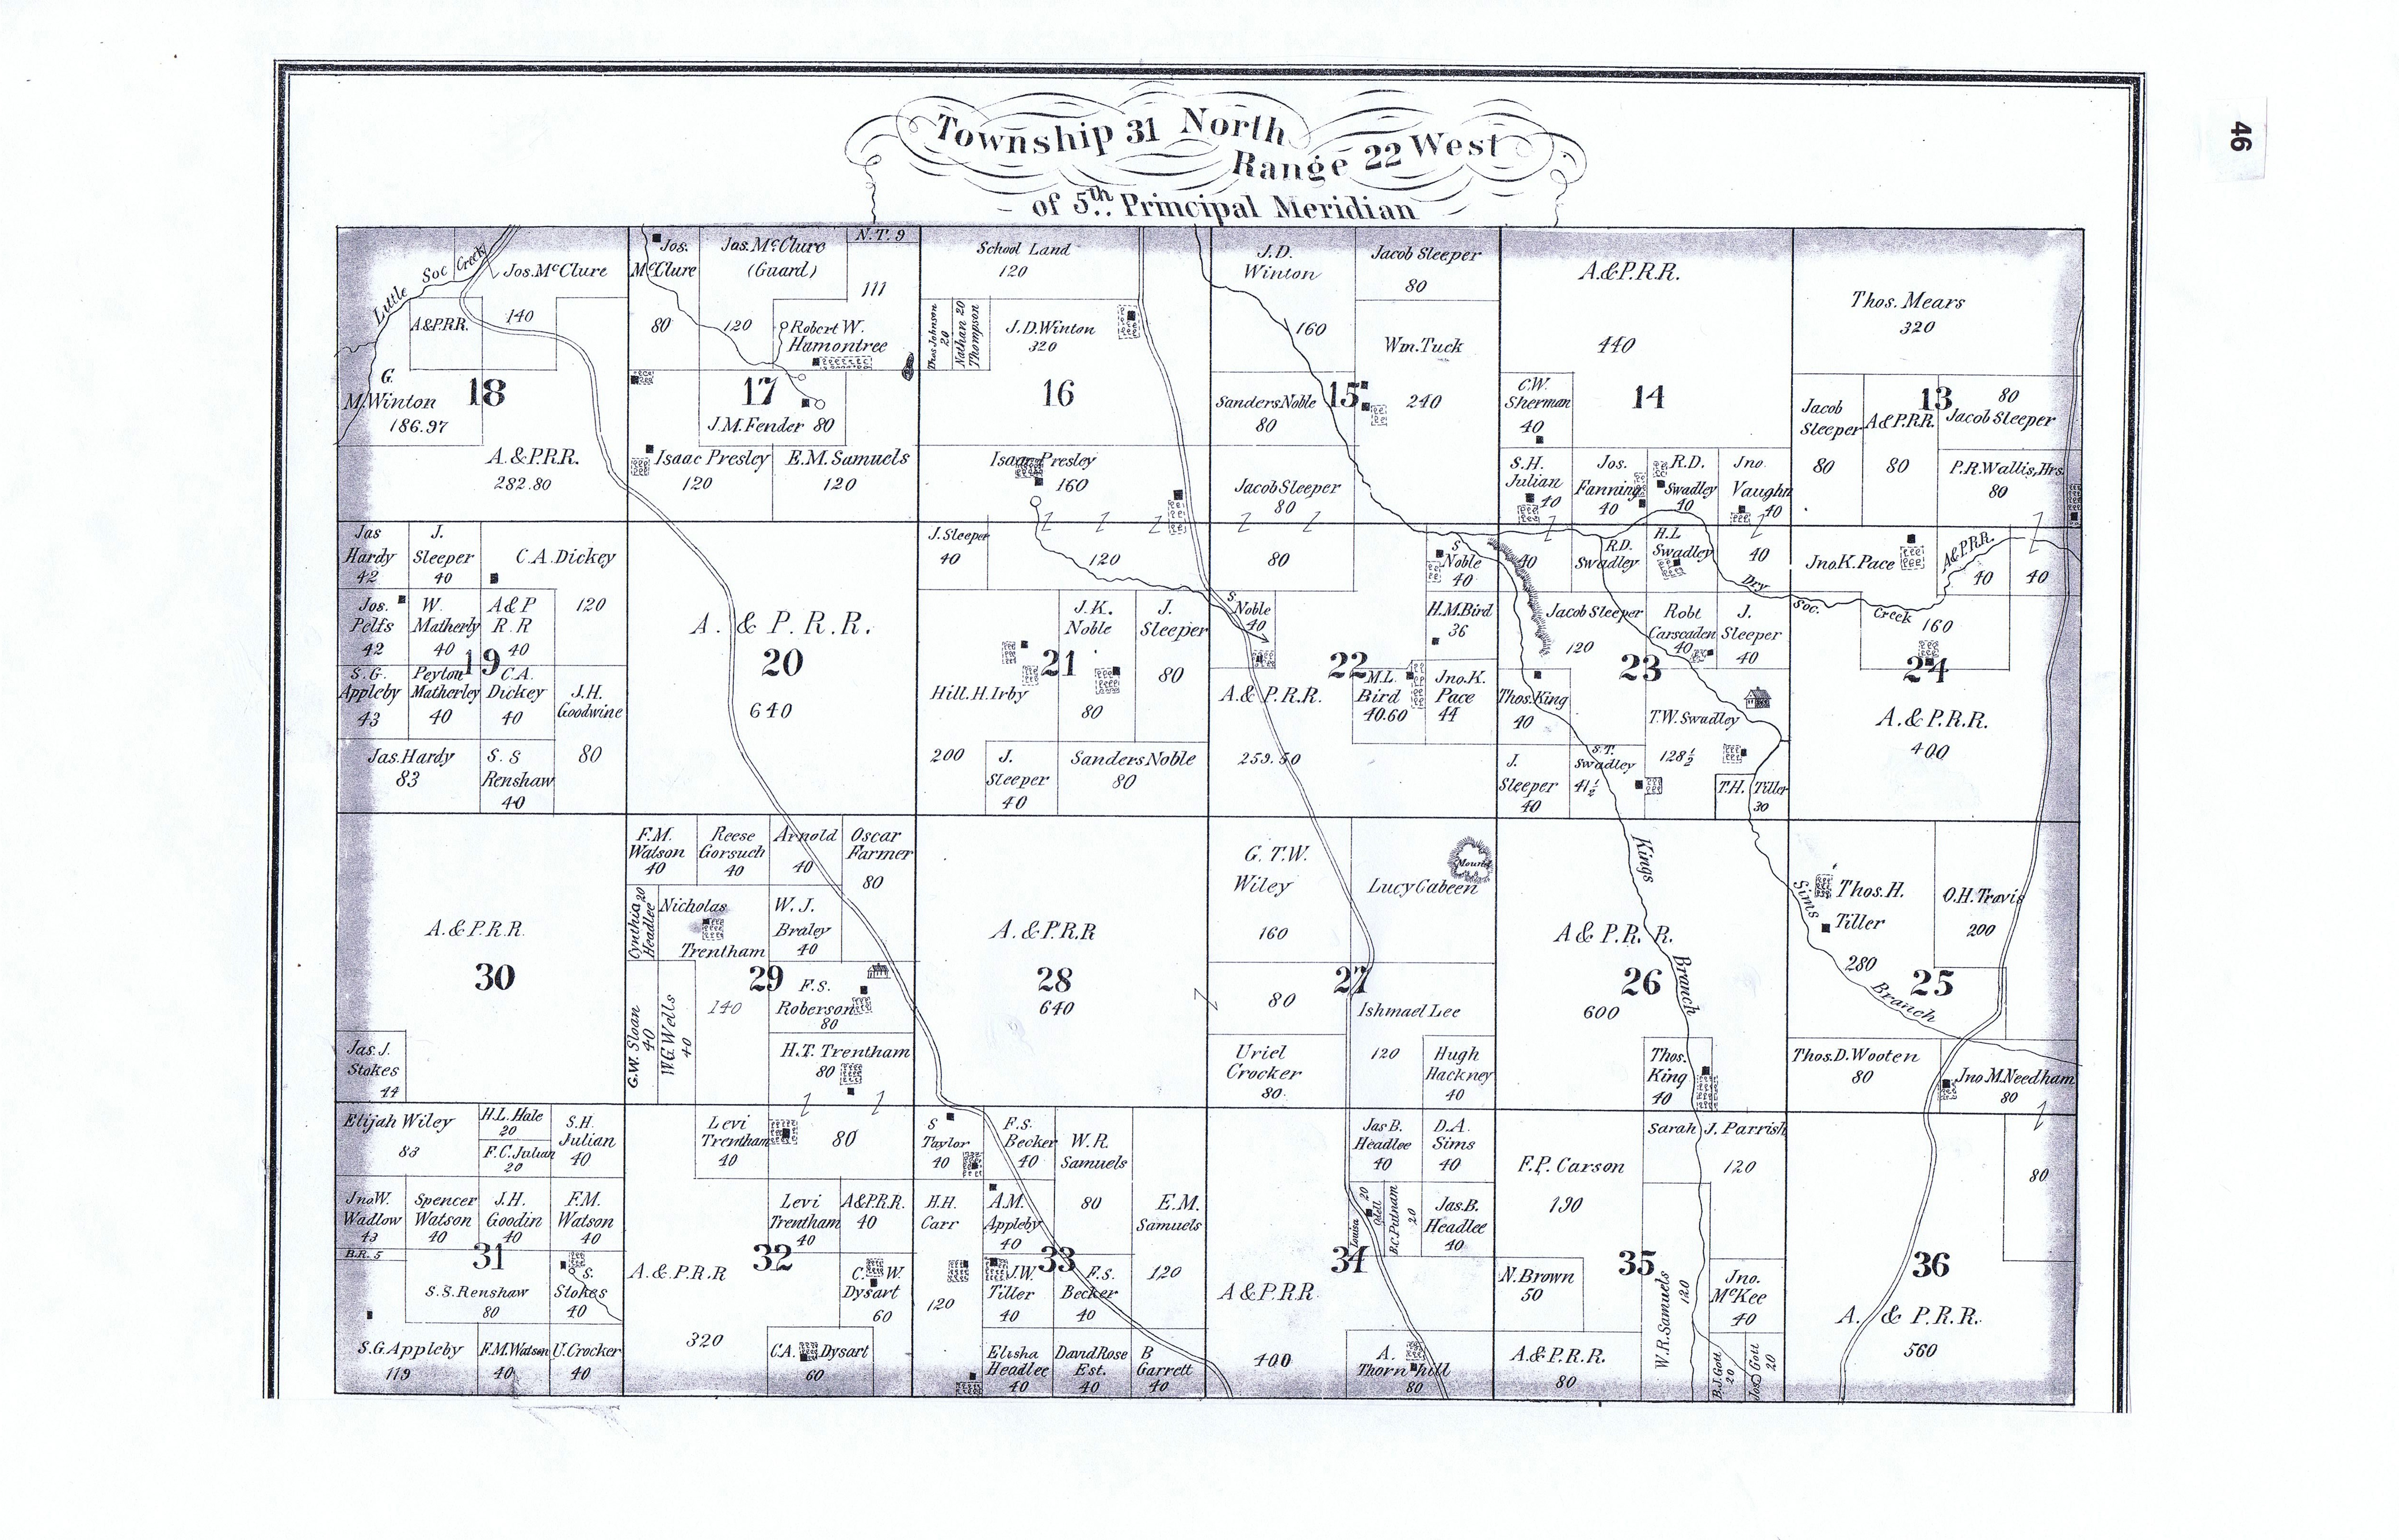 46
Township 31 North
Range 22 West
of 5th Principal Meridian
Little Soc Creek
Jos. McClure
140
A&P.RR.
G.
M. Winton
186.97
18
A.&P.R.R.
282.80
Jos.
McClure
80
Jas. McClure
(Guard)
120
N.T. 9
111
Robert W.
Hamontree
17
J.M. Fender 80
Isaac Presley
120
E.M. Samuels
120
School Land
120
Thos Johnson
20
Nathan 20
Thompson
J.D. Winton
320
16
Isaac Presley
160
J.D.
Winton
160
Jacob Sleeper
80
Wm. Tuck
240
Sanders Noble
80
15
Jacob Sleeper
80
A.&P.R.R.
440
C.W.
Sherman
40
14
S.H.
Julian
40
Jos.
Fanning
40
R.D.
Swadley
40
Jno.
Vaughn
40
Thos. Mears
320
Jacob
Sleeper
80
A&P.R.R.
80
13
80
Jacob Sleeper
P.R. Wallis, Hrs.
80
Jas
Hardy
42
J.
Sleeper
40
C.A. Dickey
120
Jos.
Pelfs
42
W.
Matherly
40
A&P
R.R
40
19
S.G.
Appleby
43
Peyton
Matherley
40
C.A.
Dickey
40
J.H.
Goodwine
80
Jas. Hardy
83
S.S
Renshaw
40
A. & P.R.R.
20
640
J. Sleeper
40
120
J.K.
Noble
80
J.
Sleeper
80
21
Hill. H. Irby
200
J.
Sleeper
40
Sanders Noble
80
80
S.
Noble
40
S
Noble
40
H.M. Bird
36
22
A.& P.R.R.
259.50
M.L.
Bird
40.60
Jno. K.
Pace
44
40
R.D.
Swadley
H.L
Swadley
40
Dry Soc. Creek
Jacob Sleeper
120
Robt
Carscaden
40
J.
Sleeper
40
23
Thos. King
40
T.W. Swadley
128½
J.
Sleeper
40
S.T.
Swadley
41½
T.H. Tiller
30
Jno K. Pace
A&P.RR.
40
40
160
24
A.&P.R.R.
400
A.&P.R.R.
30
Jas. J.
Stokes
44
F.M.
Watson
40
Reese
Gorsuch
40
Arnold
40
Oscar
Farmer
80
Cynthia 20
Headlee
Nicholas
Trentham
140
W.J.
Braley
40
29
F.S.
Roberson
80
G.W. Sloan
40
W.G. Wells
40
H.T. Trentham
80
A.&P.R.R
28
640
G.T.W.
Wiley
160
Lucy Cabeen
Mound
27
80
Ishmael Lee
120
Uriel
Crocker
80
Hugh
Hackney
40
Kings Branch
A&P.R.R.
26
600
Thos.
King
40
Sims Branch
Thos. H.
Tiller
280
O.H. Travis
200
25
Thos. D. Wooten
80
Jno M. Needham
80
Elijah Wiley
83
H.L. Hale
20
F.C. Julian
20
S.H.
Julian
40
Jno W.
Wadlow
43
Spencer
Watson
40
J.H.
Goodin
40
F.M.
Watson
40
B.R. 5
31
S.S. Renshaw
80
S.
Stokes
40
S.G. Appleby
119
F.M. Watson
40
U. Crocker
40
Levi
Trentham
40
80
Levi
Trentham
40
A&P.R.R.
40
32
A.&P.R.R
320
C. W.
Dysart
60
C.A. Dysart
60
S
Taylor
40
F.S.
Becker
40
W.R.
Samuels
80
H.H.
Carr
120
A.M.
Appleby
40
E.M.
Samuels
120
33
J.W.
Tiller
40
F.S.
Becker
40
Elisha
Headlee
40
David Rose
Est.
40
B
Garrett
40
Jas B.
Headlee
40
D.A.
Sims
40
Louisa Odell
20
B.C. Putnam
20
Jas. B.
Headlee
40
34
A&P.R.R.
400
A.
Thornhill
80
Sarah J. Parrish
120
F.P. Carson
190
35
N. Brown
50
W.R. Samuels
120
Jno.
McKee
40
A.&P.R.R.
80
B.J. Gott
20
Jos. Gott
20
80
36
A. & P.R.R.
560